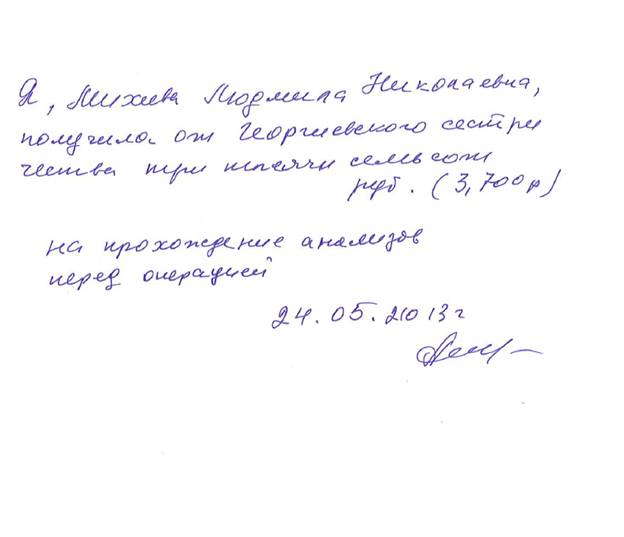 Я, Михиева Людмила Николаевна,
получила от Георгиевского сестри
чества три тысячи семьсот
руб. (3,700 р)
на прохождение анализов
перед операцией
24.05.2013г